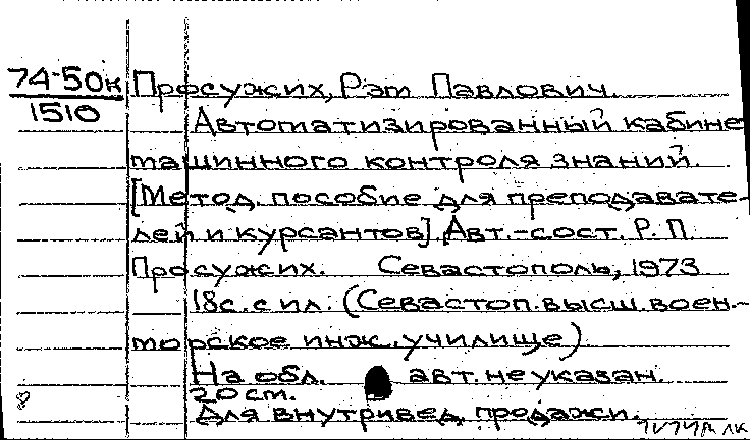 74-50к Просужих, Рэт Павлович.
1510
Автоматизированный кабине
машинного контроля знаний.
[Метод. пособие для преподавате-
лей и курсантов] Авт.-сост. Р. П.
Просужих. Севастополь, 1973
18с. с ил. (Севастоп. высш. воен-
морское инж. училище)
На обл. авт. не указан.
20 см.
Для внутривед. продажи.
8